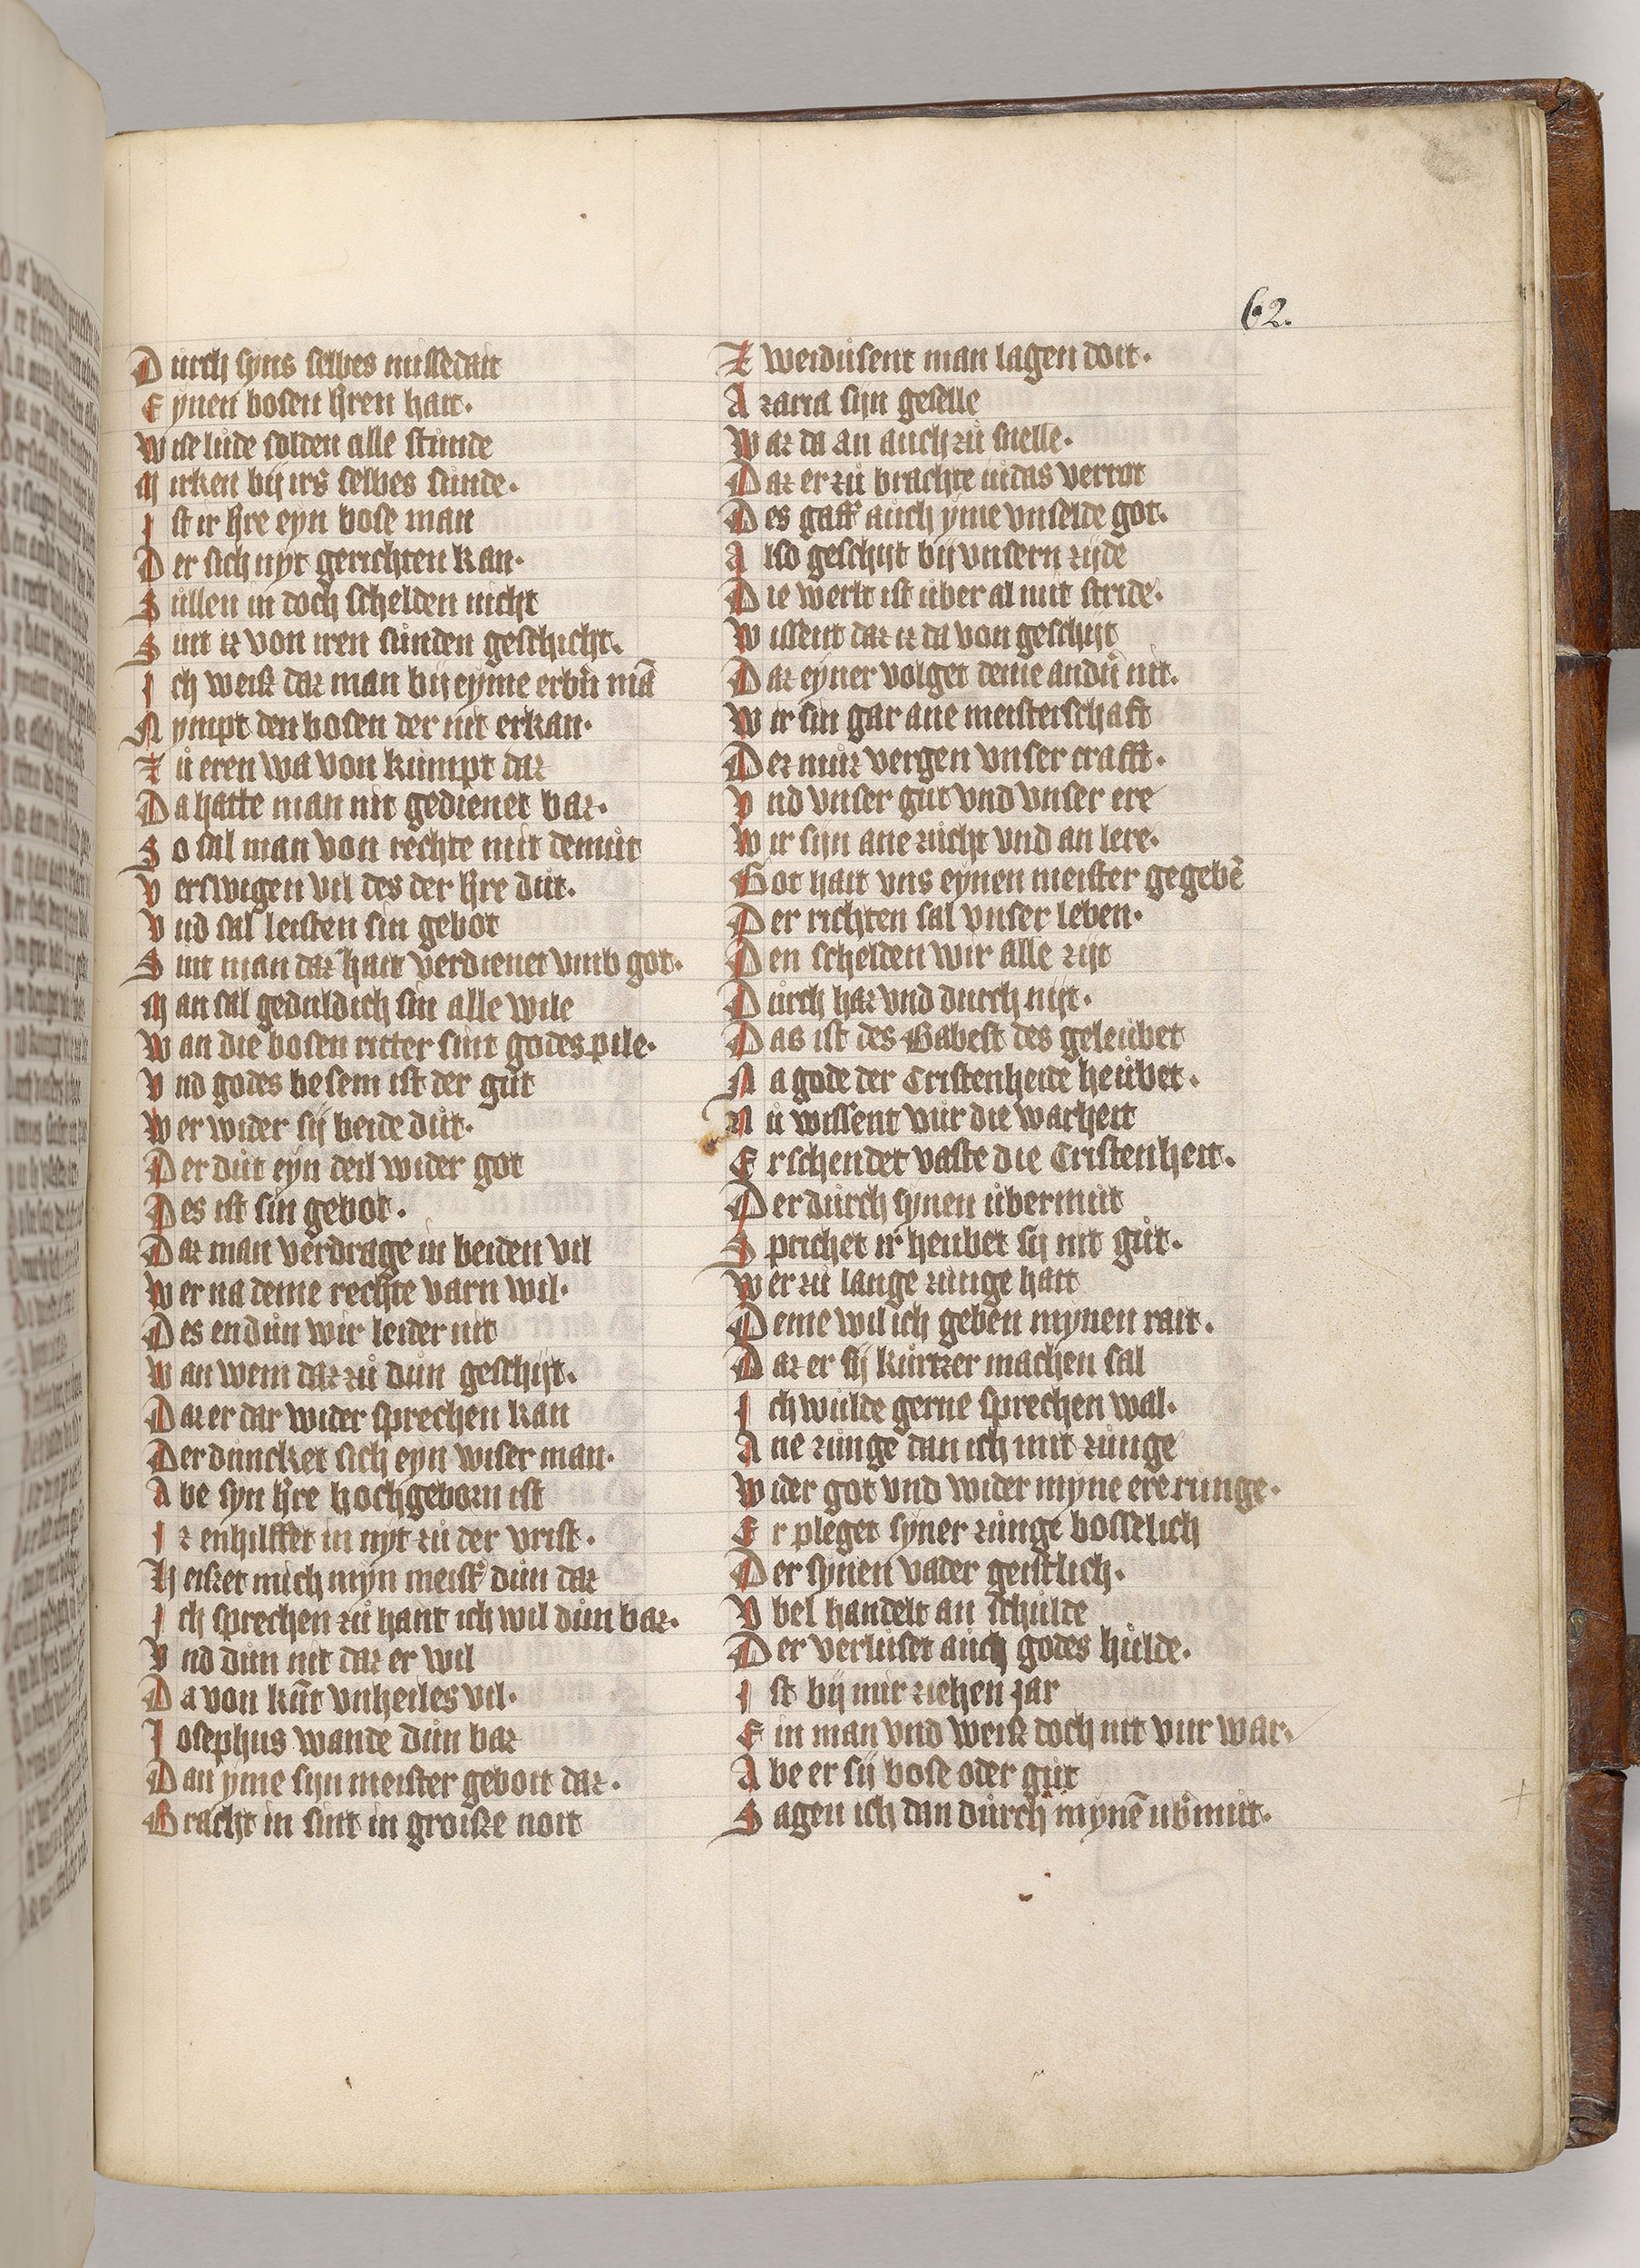 62.
Durch syns selbes missedait
Eynen bosen h̕ren hait.
Wise lude solden alle stunde
Mirken bij irs selbes sunde.
Ist ir h̕re eyn bose man
Der sich nyt gerichten kan.
Sullen in doch schelden nicht
Sint iz von iren sunden geschicht.
Ich weiß daz man bij eyme erbn̕ mā
Nympt den bosen der nit erkan.
Zů eren wa von kumpt daz
Da hatte man nit gedienet baz.
So sal man von rechte mit demůt
Verswigen vil des der h̕re důt.
Vnd sal leisten sin gebot
Sint man daz hait verdienet vmb got.
Man sal geduldich sin alle wile
Wan die bosen ritter sint godes pile.
Vnd godes besem ist der gůt
Wer wider sij beide důt.
Der důt eyn deil wider got
Des ist sin gebot.
Daz man verdrage in beiden vil
Wer na deme rechte varn wil.
Des endůn wir leider nit
Wan wem daz zů důn geschijt.
Daz er dar wider sprechen kan
Der duncket sich eyn wiser man.
Abe syn h̕re hochgeborn ist
Iz enhilffet in nyt zů der vrist.
Heißet mich myn meist̕ důn daz
Ich sprechen zů hant ich wil důn baz.
Vnd důn nit daz er wil
Da von kūt vnheiles vil.
Josephus wande důn baz
Dan yme sijn meister geboit daz.
Bracht in sint in groiße noit
Zweidusent man lagen doit.
Azaria sijn geselle
Waz da an auch zů snelle.
Daz er zů brachte iudas verrot
Des gaff auch yme vnselde got.
Also geschijt bij vnsern zijde
Die werlt ist uber al mit stride.
Wissent daz iz da von geschijt
Daz eyner volget deme andn̕ nit.
Wir sin gar ane meisterschaft
Dez můz vergen vnser crafft.
Vnd vnser gůt vnd vnser ere
Wir sijn ane zůcht vnd an lere.
Got hait vns eynen meister gegebē
Der richten sal vnser leben.
Den schelden wir alle zijt
Durch haz vnd durch nijt.
Das ist des Babest des geleubet
Na gode der Cristenheide heubet.
Nu wissent vur die warheit
Er schendet vaste die Cristenheit.
Der durch synen ubermůt
Sprichet ir heubet sij nit gůt.
Wer zů lange zunge hait
Deme wil ich geben mynen rait.
Daz er sij kurtzer machen sal
Ich wulde gerne sprechen wal.
Ane zunge dan ich mit zunge
Wider got vnd wider myne ere runge.
Er pleget syner zunge bosselich
Der synen vader geistlich.
Vbel handelt an schulde
Der verluset auch godes hulde.
Ist bij mir ziehen jar
Ein man vnd weiß doch nit vur war.
Abe er sij bose oder gůt
Sagen ich dan durch mynē ub̕můt.